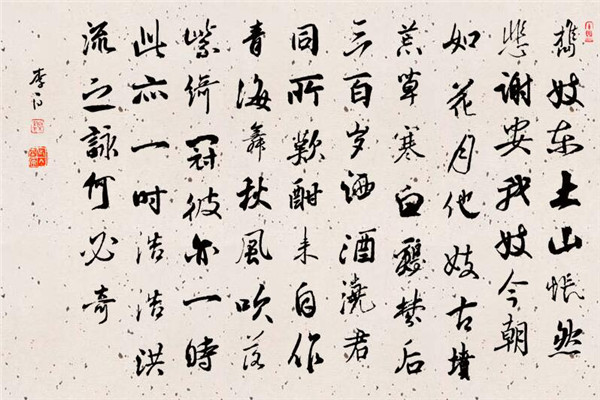 攜妓东土山怅然
悲谢安我妓今朝
如花月他妓古墳
荒草寒白鷄梦后
三百岁洒酒浇君
同所歡酣来自作
青海舞秋風吹落
紫绮冠彼亦一時
此亦一时浩浩洪
流之詠何必奇
李白